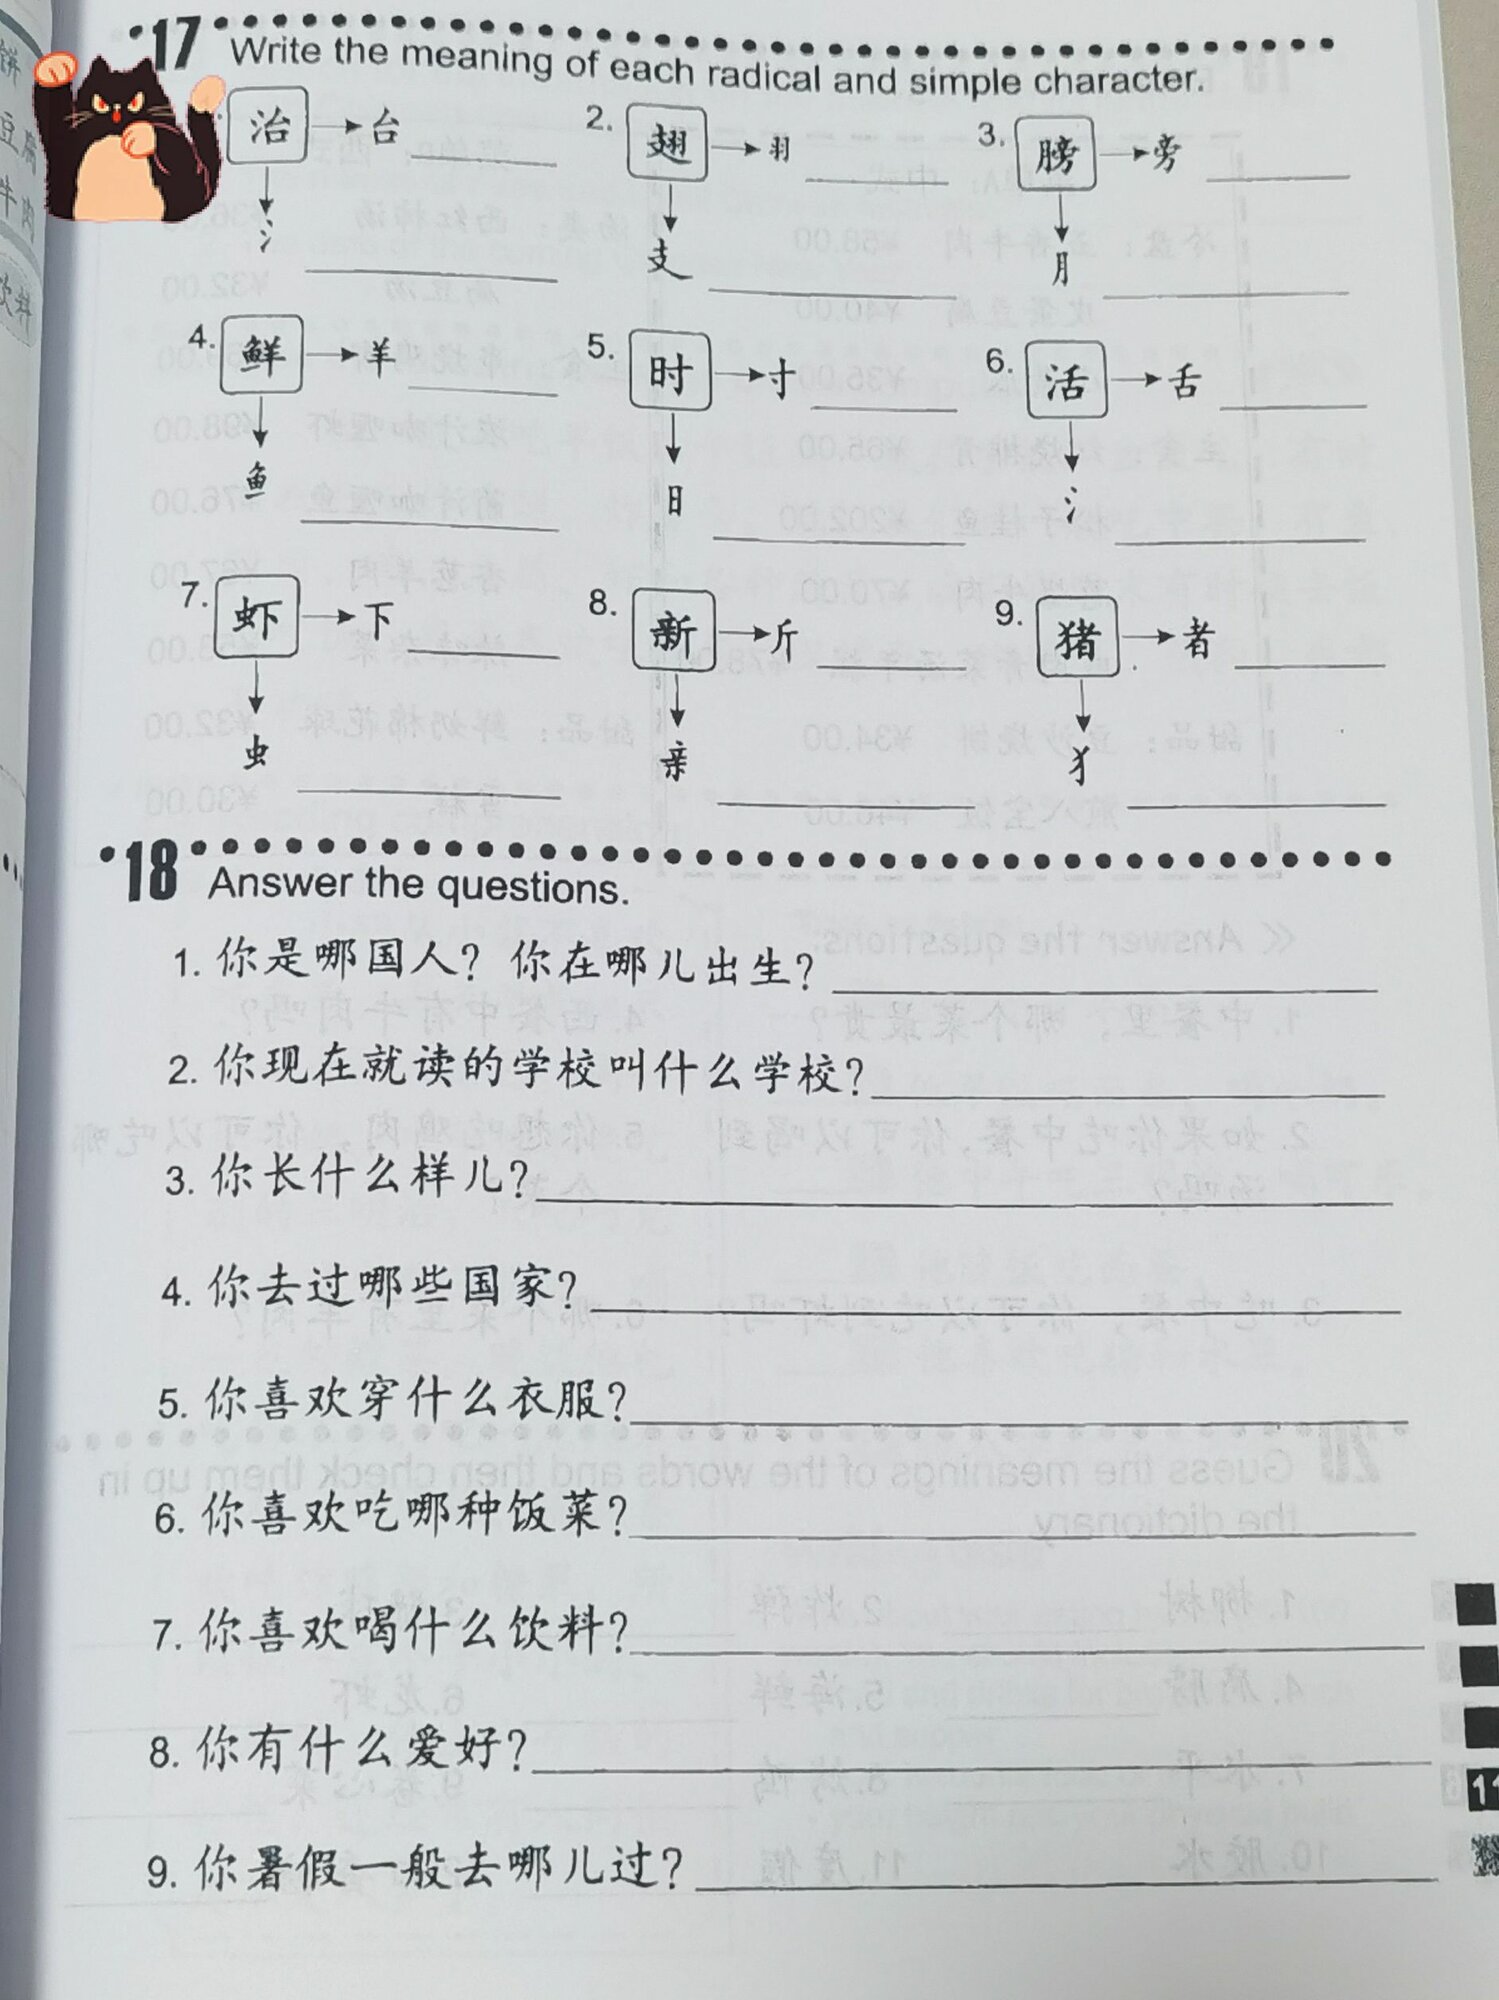 17 Write the meaning of each radical and simple character.
治 台 2. 翅 羽 3. 膀 旁
氵 支 月
4. 鲜 羊 5. 时 寸 6. 活 舌
鱼 日 氵
7. 虾 下 8. 新 斤 9. 猪 者
虫 亲 犭
18 Answer the questions.
1. 你是哪国人？你在哪儿出生？
2. 你现在就读的学校叫什么学校？
3. 你长什么样儿？
4. 你去过哪些国家？
5. 你喜欢穿什么衣服？
6. 你喜欢吃哪种饭菜？
7. 你喜欢喝什么饮料？
8. 你有什么爱好？
9. 你暑假一般去哪儿过？
饼
豆腐
牛肉
饮料
11